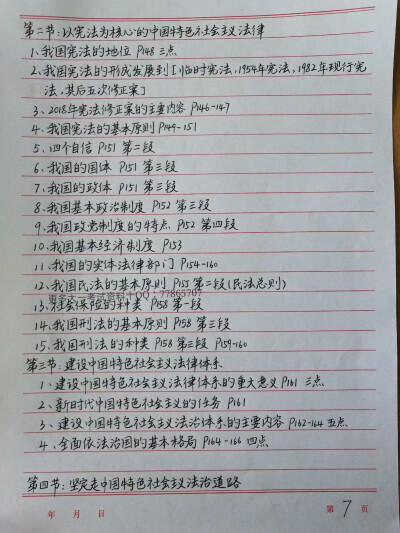 第二节：以宪法为核心的中国特色社会主义法律
1、我国宪法的地位 P148 三点
2、我国宪法的形成发展到[临时宪法，1954年宪法，1982年现行宪
法，其后五次修正案]
3、2018年宪法修正案的主要内容 P146-147
4、我国宪法的基本原则 P149-151
5、四个自信 P151 第二段
6、我国的国体 P151 第三段
7、我国的政体 P151 第三段
8、我国基本政治制度 P152 第三段
9、我国政党制度的特点 P152 第四段
10、我国基本经济制度 P153
11、我国的实体法律部门 P154-160
12、我国民法的基本原则 P155 第二段(民法总则)
更多大一考试资料+QQ：77865707
13、社会保险的种类 P158 第一段
14、我国刑法的基本原则 P158 第三段
15、我国刑法的种类 P158 第三段 P159-160
第三节：建设中国特色社会主义法律体系
1、建设中国特色社会主义法律体系的重大意义 P161 三点
2、新时代中国特色社会主义的任务 P161
3、建设中国特色社会主义法治体系的主要内容 P162-164 五点
4、全面依法治国的基本格局 P164-166 四点
第四节：坚定走中国特色社会主义法治道路
年 月 日 第 7 页